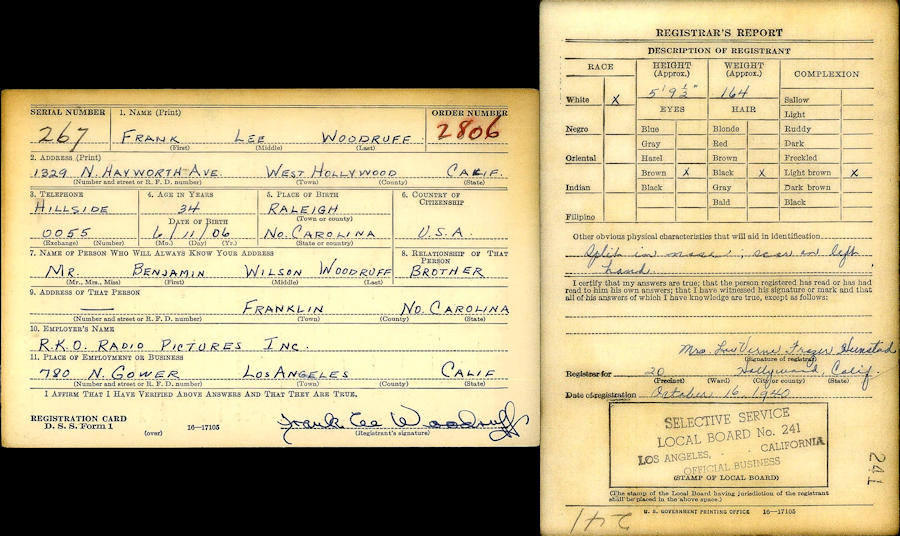 SERIAL NUMBER 1. NAME (Print) ORDER NUMBER
267 FRANK LEE WOODRUFF 2806
(First) (Middle) (Last)
2. ADDRESS (Print)
1329 N. HAYWORTH AVE. WEST HOLLYWOOD CALIF.
(Number and street or R. F. D. number) (Town) (County) (State)
3. TELEPHONE 4. AGE IN YEARS 5. PLACE OF BIRTH 6. COUNTRY OF CITIZENSHIP
HILLSIDE 34 RALEIGH
DATE OF BIRTH (Town or county)
0055 6/11/06 NO. CAROLINA U.S.A.
(Exchange) (Number) (Mo.) (Day) (Yr.) (State or county)
7. NAME OF PERSON WHO WILL ALWAYS KNOW YOUR ADDRESS 8. RELATIONSHIP OF THAT PERSON
MR. BENJAMIN WILSON WOODRUFF BROTHER
(Mr., Mrs., Miss) (First) (Middle) (Last)
9. ADDRESS OF THAT PERSON
— FRANKLIN NO. CAROLINA
(Number and street or R. F. D. number) (Town) (County) (State)
10. EMPLOYER'S NAME
R.K.O. RADIO PICTURES INC.
11. PLACE OF EMPLOYMENT OR BUSINESS
780 N. GOWER LOS ANGELES CALIF
(Number and street or R. F. D. number) (Town) (County) (State)
I AFFIRM THAT I HAVE VERIFIED ABOVE ANSWERS AND THAT THEY ARE TRUE.
REGISTRATION CARD
D. S. S. Form 1 (over) 16—17105 Frank Lee Woodruff
(Registrant's signature)
REGISTRAR'S REPORT
DESCRIPTION OF REGISTRANT
RACE HEIGHT (Approx.) WEIGHT (Approx.) COMPLEXION
White X 5' 9½" 164 Sallow
EYES HAIR Light
Negro Blue Blonde Ruddy
Gray Red Dark
Oriental Hazel Brown Freckled
Brown X Black X Light brown X
Indian Black Gray Dark brown
Bald Black
Filipino
Other obvious physical characteristics that will aid in identification
Split in nose; scar on left
hand
I certify that my answers are true; that the person registered has read or has had
read to him his own answers; that I have witnessed his signature or mark and that
all of his answers of which I have knowledge are true, except as follows:
Mrs. Frazer
(Signature of registrar)
Registrar for 20 Hollywood, Calif.
(Precinct) (Ward) (City or county) (State)
Date of registration October 16, 1940
SELECTIVE SERVICE
LOCAL BOARD No. 241
LOS ANGELES, CALIFORNIA
OFFICIAL BUSINESS
(STAMP OF LOCAL BOARD)
(The stamp of the Local Board having jurisdiction of the registrant
shall be placed in the above space.)
U. S. GOVERNMENT PRINTING OFFICE 16—17105
241
241